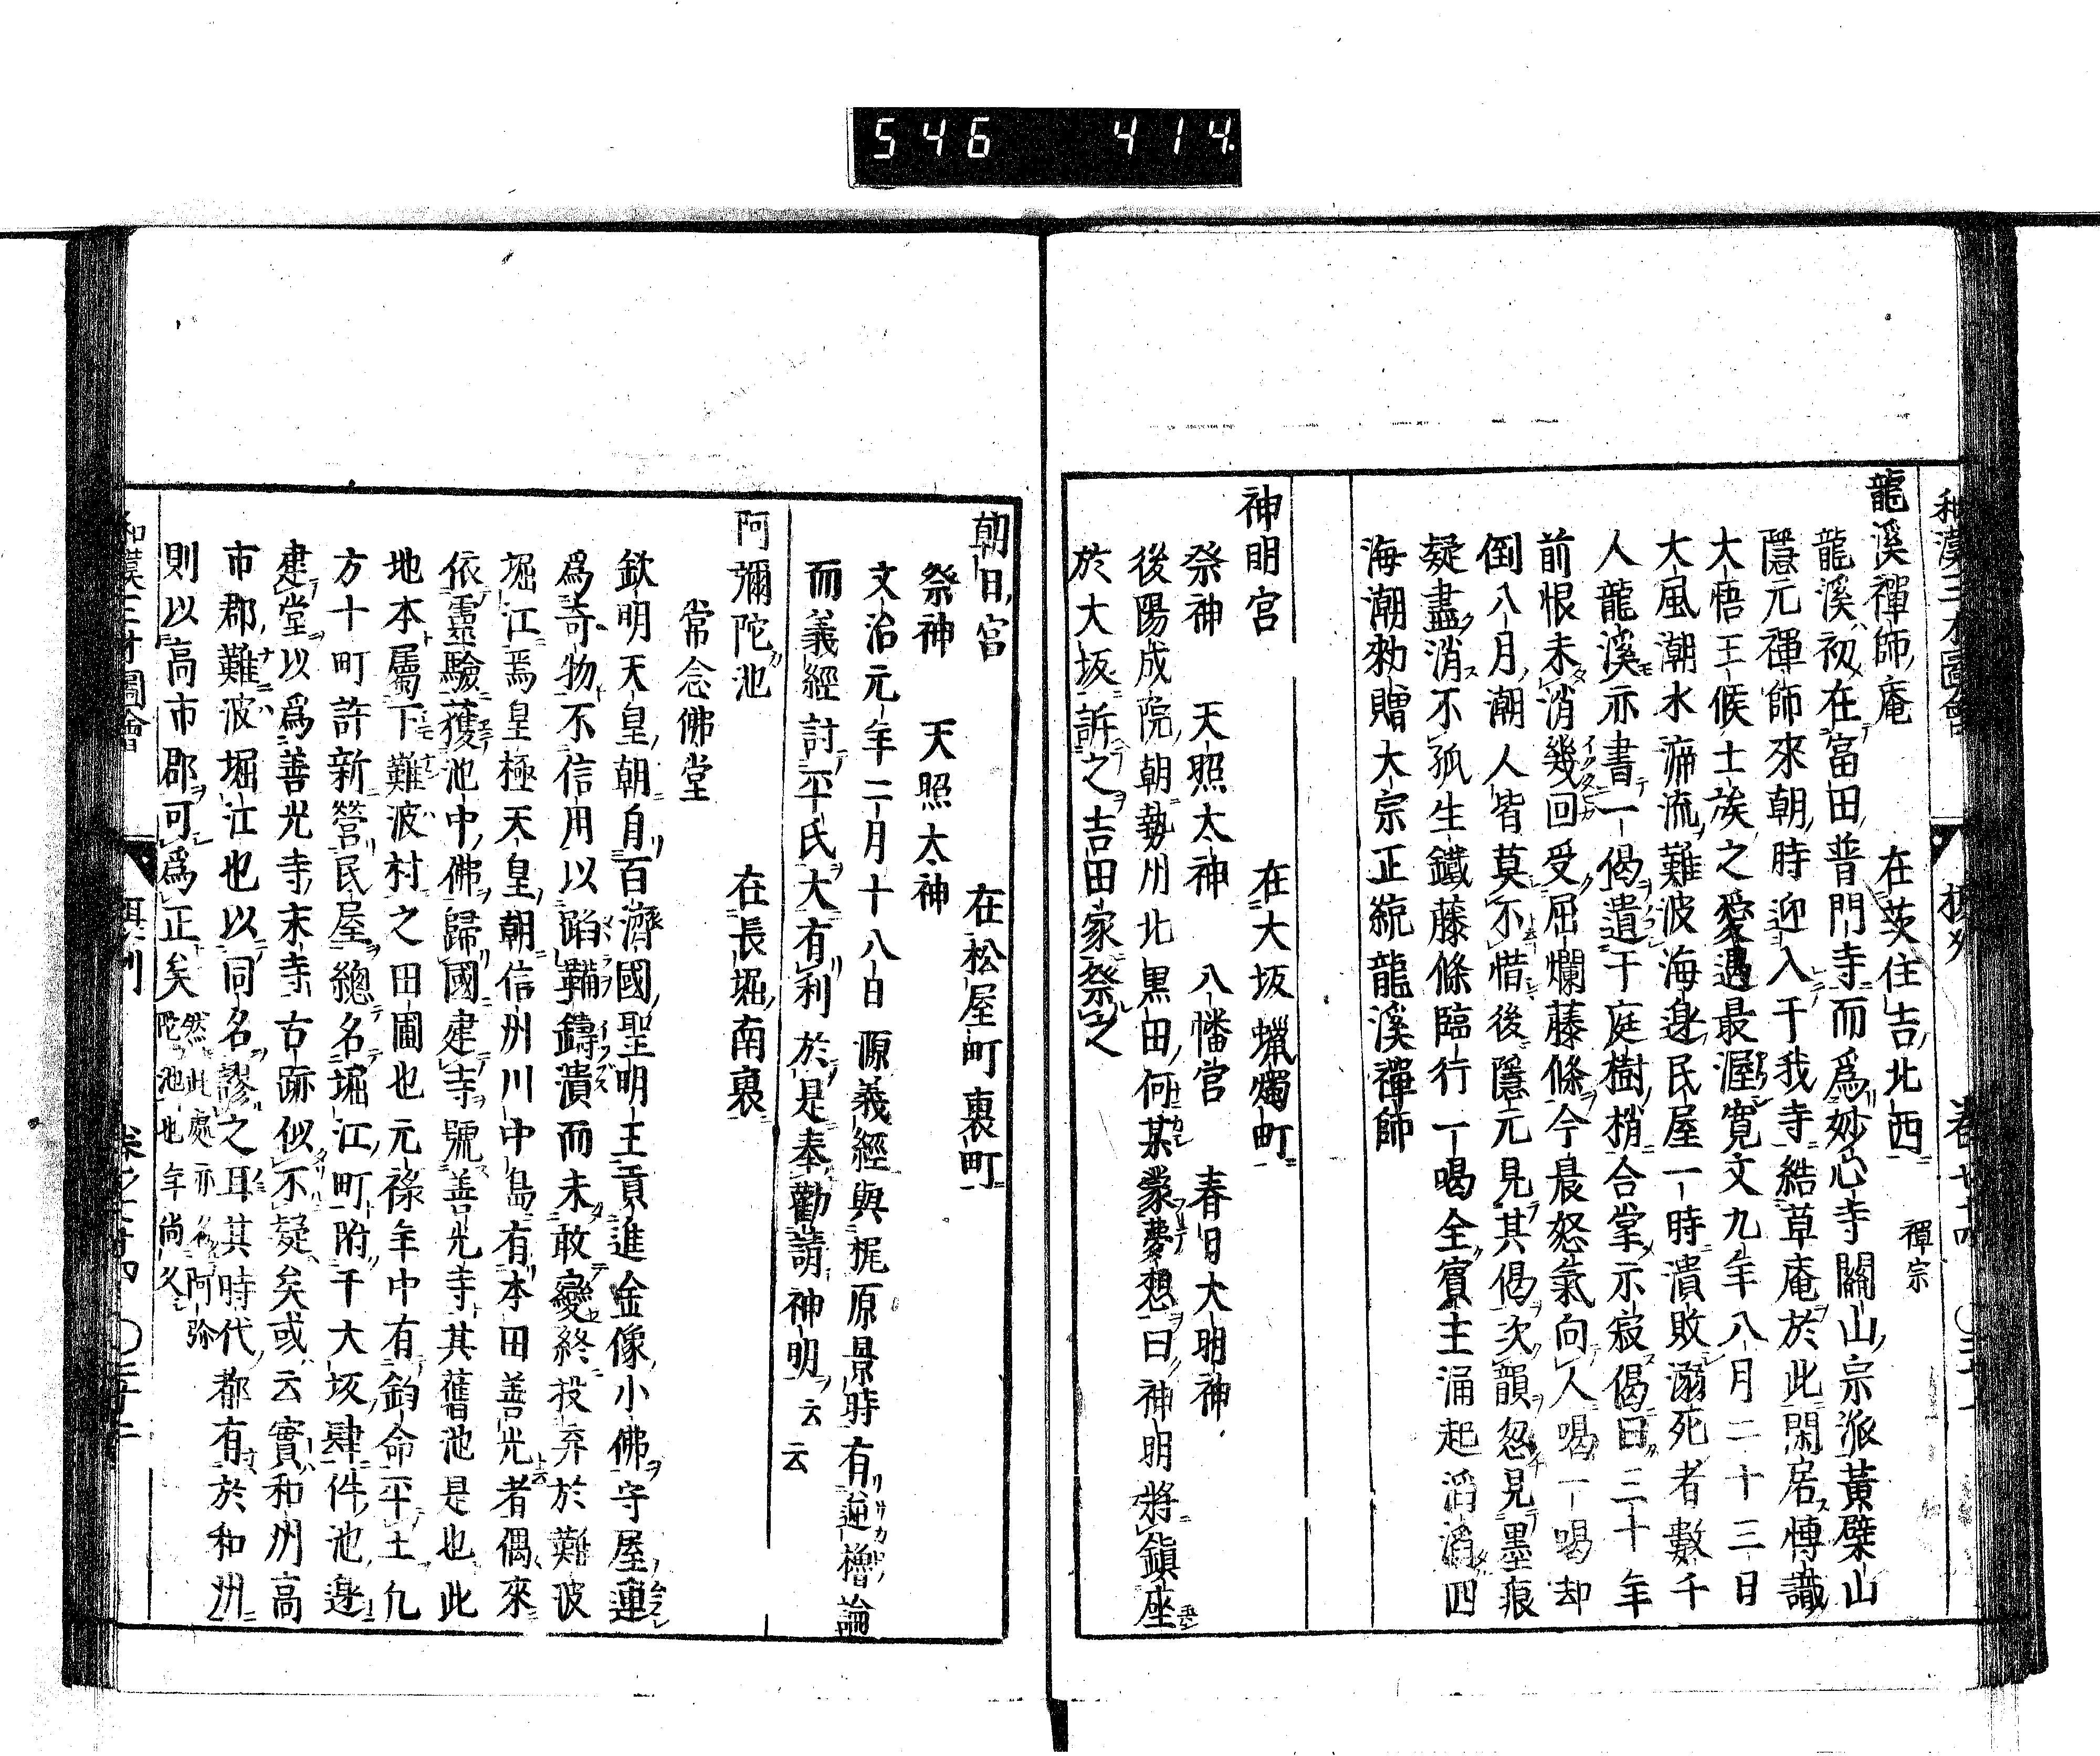 546 414.
和漢三才圖會 攝州
龍溪禪師庵 在茨住吉北西 禪宗
龍溪初在富田普門寺而爲妙心寺關山宗派黃檗山
隱元禪師來朝時迎入于我寺結草庵於此閑居博識
大悟王候士族之愛遇最渥寬文九年八月二十三日
大風潮水沛流難波海邊民屋一時潰敗溺死者數千
人龍溪亦書一偈遺于庭樹梢合掌示寂偈曰三十年
前恨未消幾回受屈爛藤條今晨怒氣向人喝一喝却
倒八月潮人皆莫不惜後隱元見其偈次韻忽見墨痕
疑盡消不孤生鐵藤條臨行一喝全賓主涌起滔滔四
海潮勅贈大宗正統龍溪禪師
神明宮 在大坂蝋燭町
祭神 天照太神 八幡宮 春日大明神
後陽成院朝勢州北黒田何某蒙夢想曰神明將鎮座
於大坂訴之吉田家祭之
朝日宮 在松屋町裏町
祭神 天照太神
文治元年二月十八日源義經與梶原景時有逆櫓論
而義經討平氏大有利於是奉勸請神明云云
阿彌陀池 在長堀南裏
常念佛堂
欽明天皇朝自百濟國聖明王貢進金像小佛守屋連
爲奇物不信用以蹈鞴鑄潰而未敢變終投弃於難波
堀江焉皇極天皇朝信州川中島有本田善光者偶來
依靈驗獲池中佛歸國建寺號善光寺其舊池是也此
地本屬下難波村之田圃也元祿年中有鈞命平土凡
方十町許新營民屋總名堀江町附于大坂肆件池邊
建堂以爲善光寺末寺古跡似不疑矣或云實和州高
市郡難波堀江也以同名謬之耳其時代都有於和州
則以高市郡可爲正矣 然此處亦名阿弥
陀池也年尚久
和漢三才圖會 攝州 卷之七十四